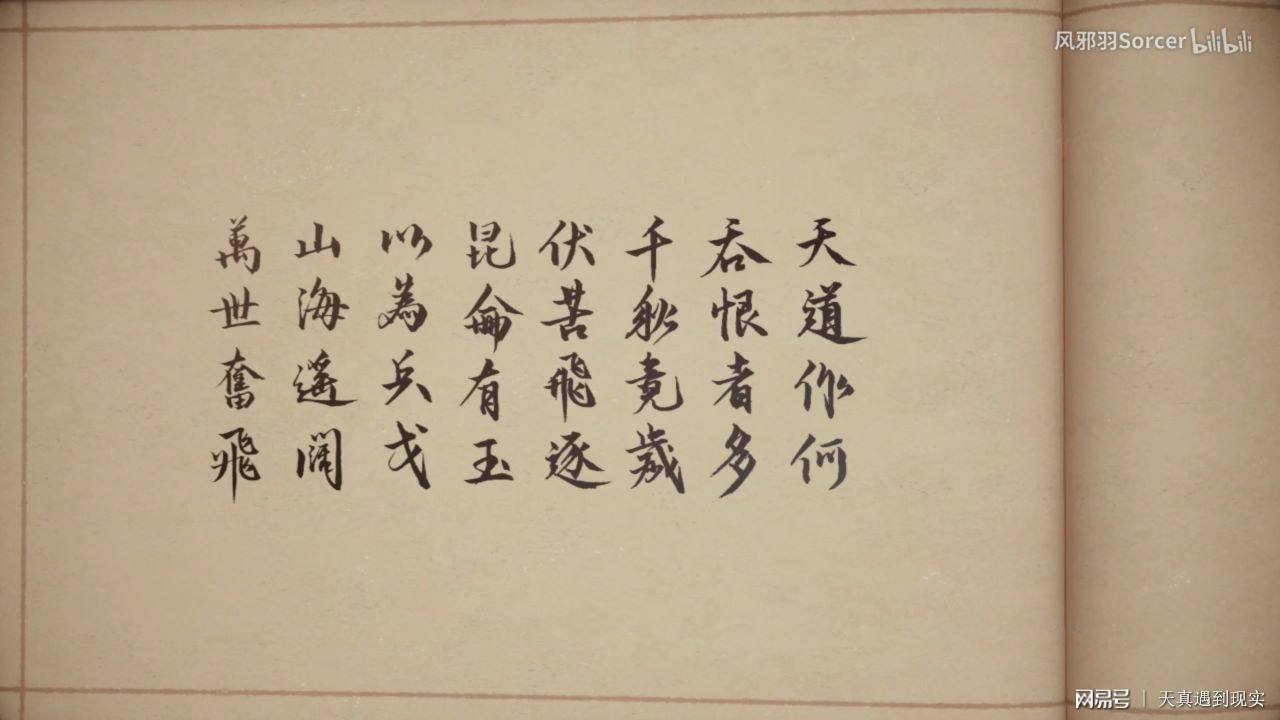 风邪羽Sorcer bilibili
天道你何
吞恨者多
千秋竟歲
伏苦飛逐
昆侖有玉
以為兵戈
山海遙阔
萬世奮飛
网易号 | 天真遇到现实